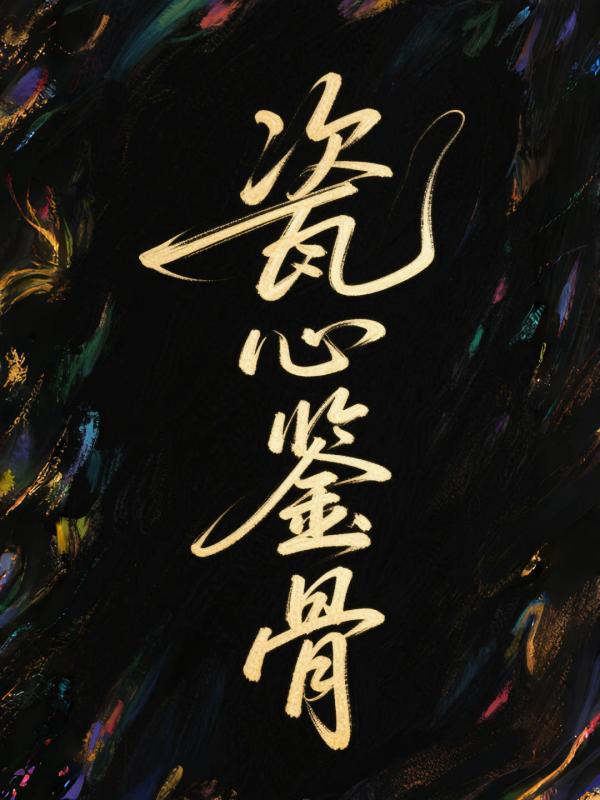 瓷心鉴骨